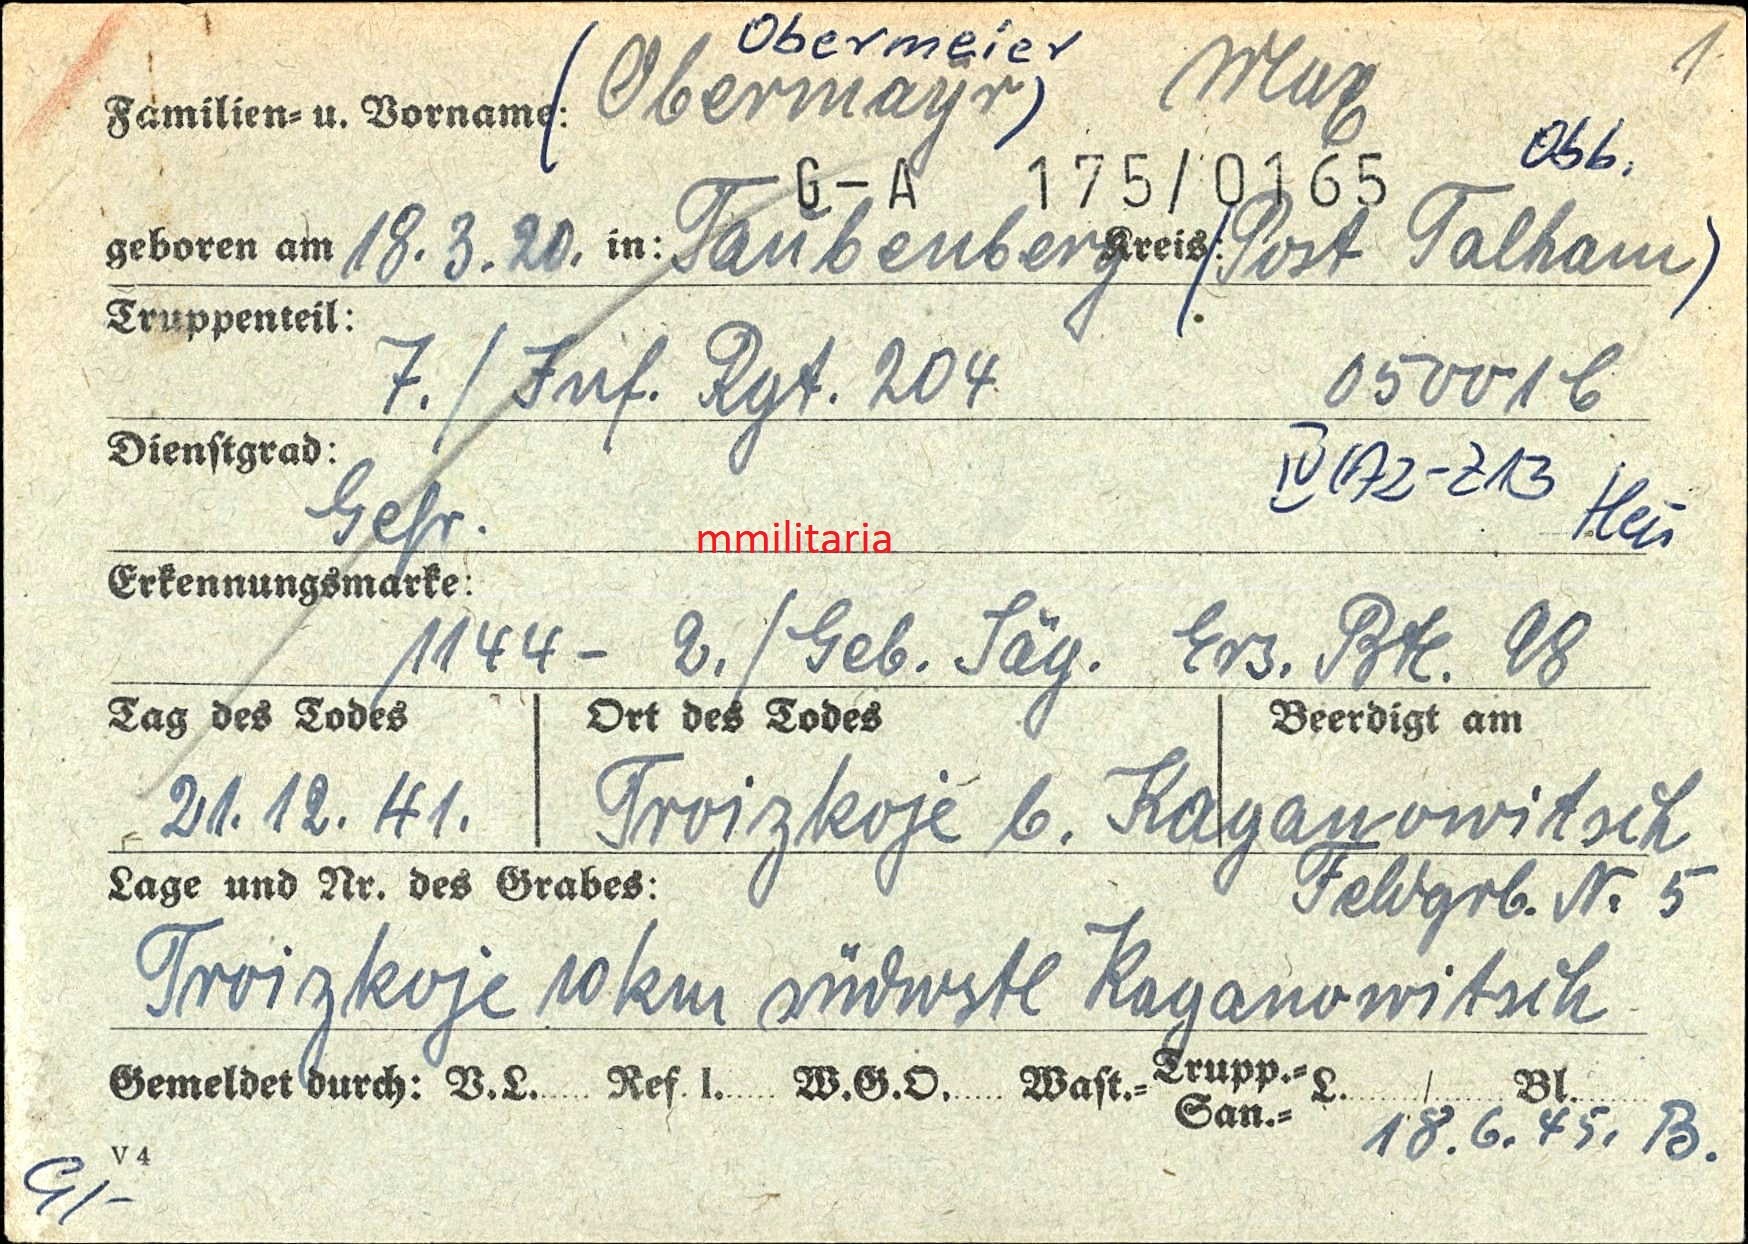 Obermeier
1.
Familien- u. Vorname: (Obermayr) Max
G-A 175/0165 Obb.
geboren am 18.3.20. in: Taubenberg Kreis: (Post Talham)
Truppenteil:
7./Inf. Rgt. 204 05001 C
Dienstgrad:
Gefr.
mmilitaria
Erkennungsmarke:
1144 - 2./Geb. Jäg. Ers. Btl. 98
Tag des Todes Ort des Todes Beerdigt am
21.12.41. Troizkoje b. Kaganowitsch
Lage und Nr. des Grabes: Feldgrb. N. 5
Troizkoje 10 km südwstl Kaganowitsch
Gemeldet durch: V.L...... Ref. I...... W.G.O...... Wast.= Trupp.=San.= L......../........ Bl.........
18.6.45. B.
V 4